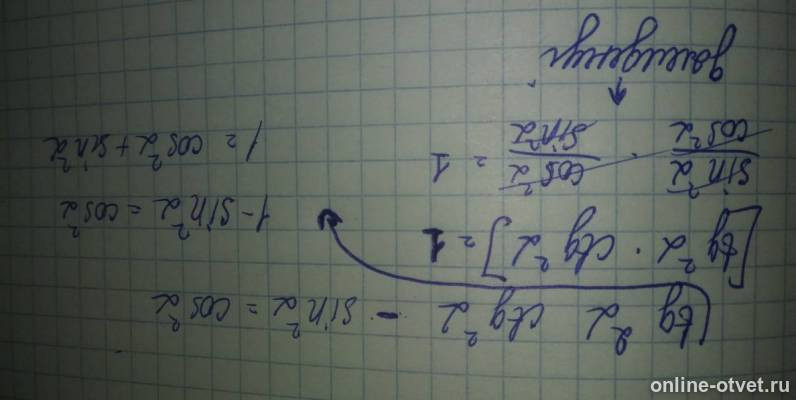 tg²α ctg²α - sin²α = cos²α
[tg²α · ctg²α] = 1
sin²α/cos²α · cos²α/sin²α = 1
1 - sin²α = cos²α
1 = cos²α + sin²α
online-otvet.ru